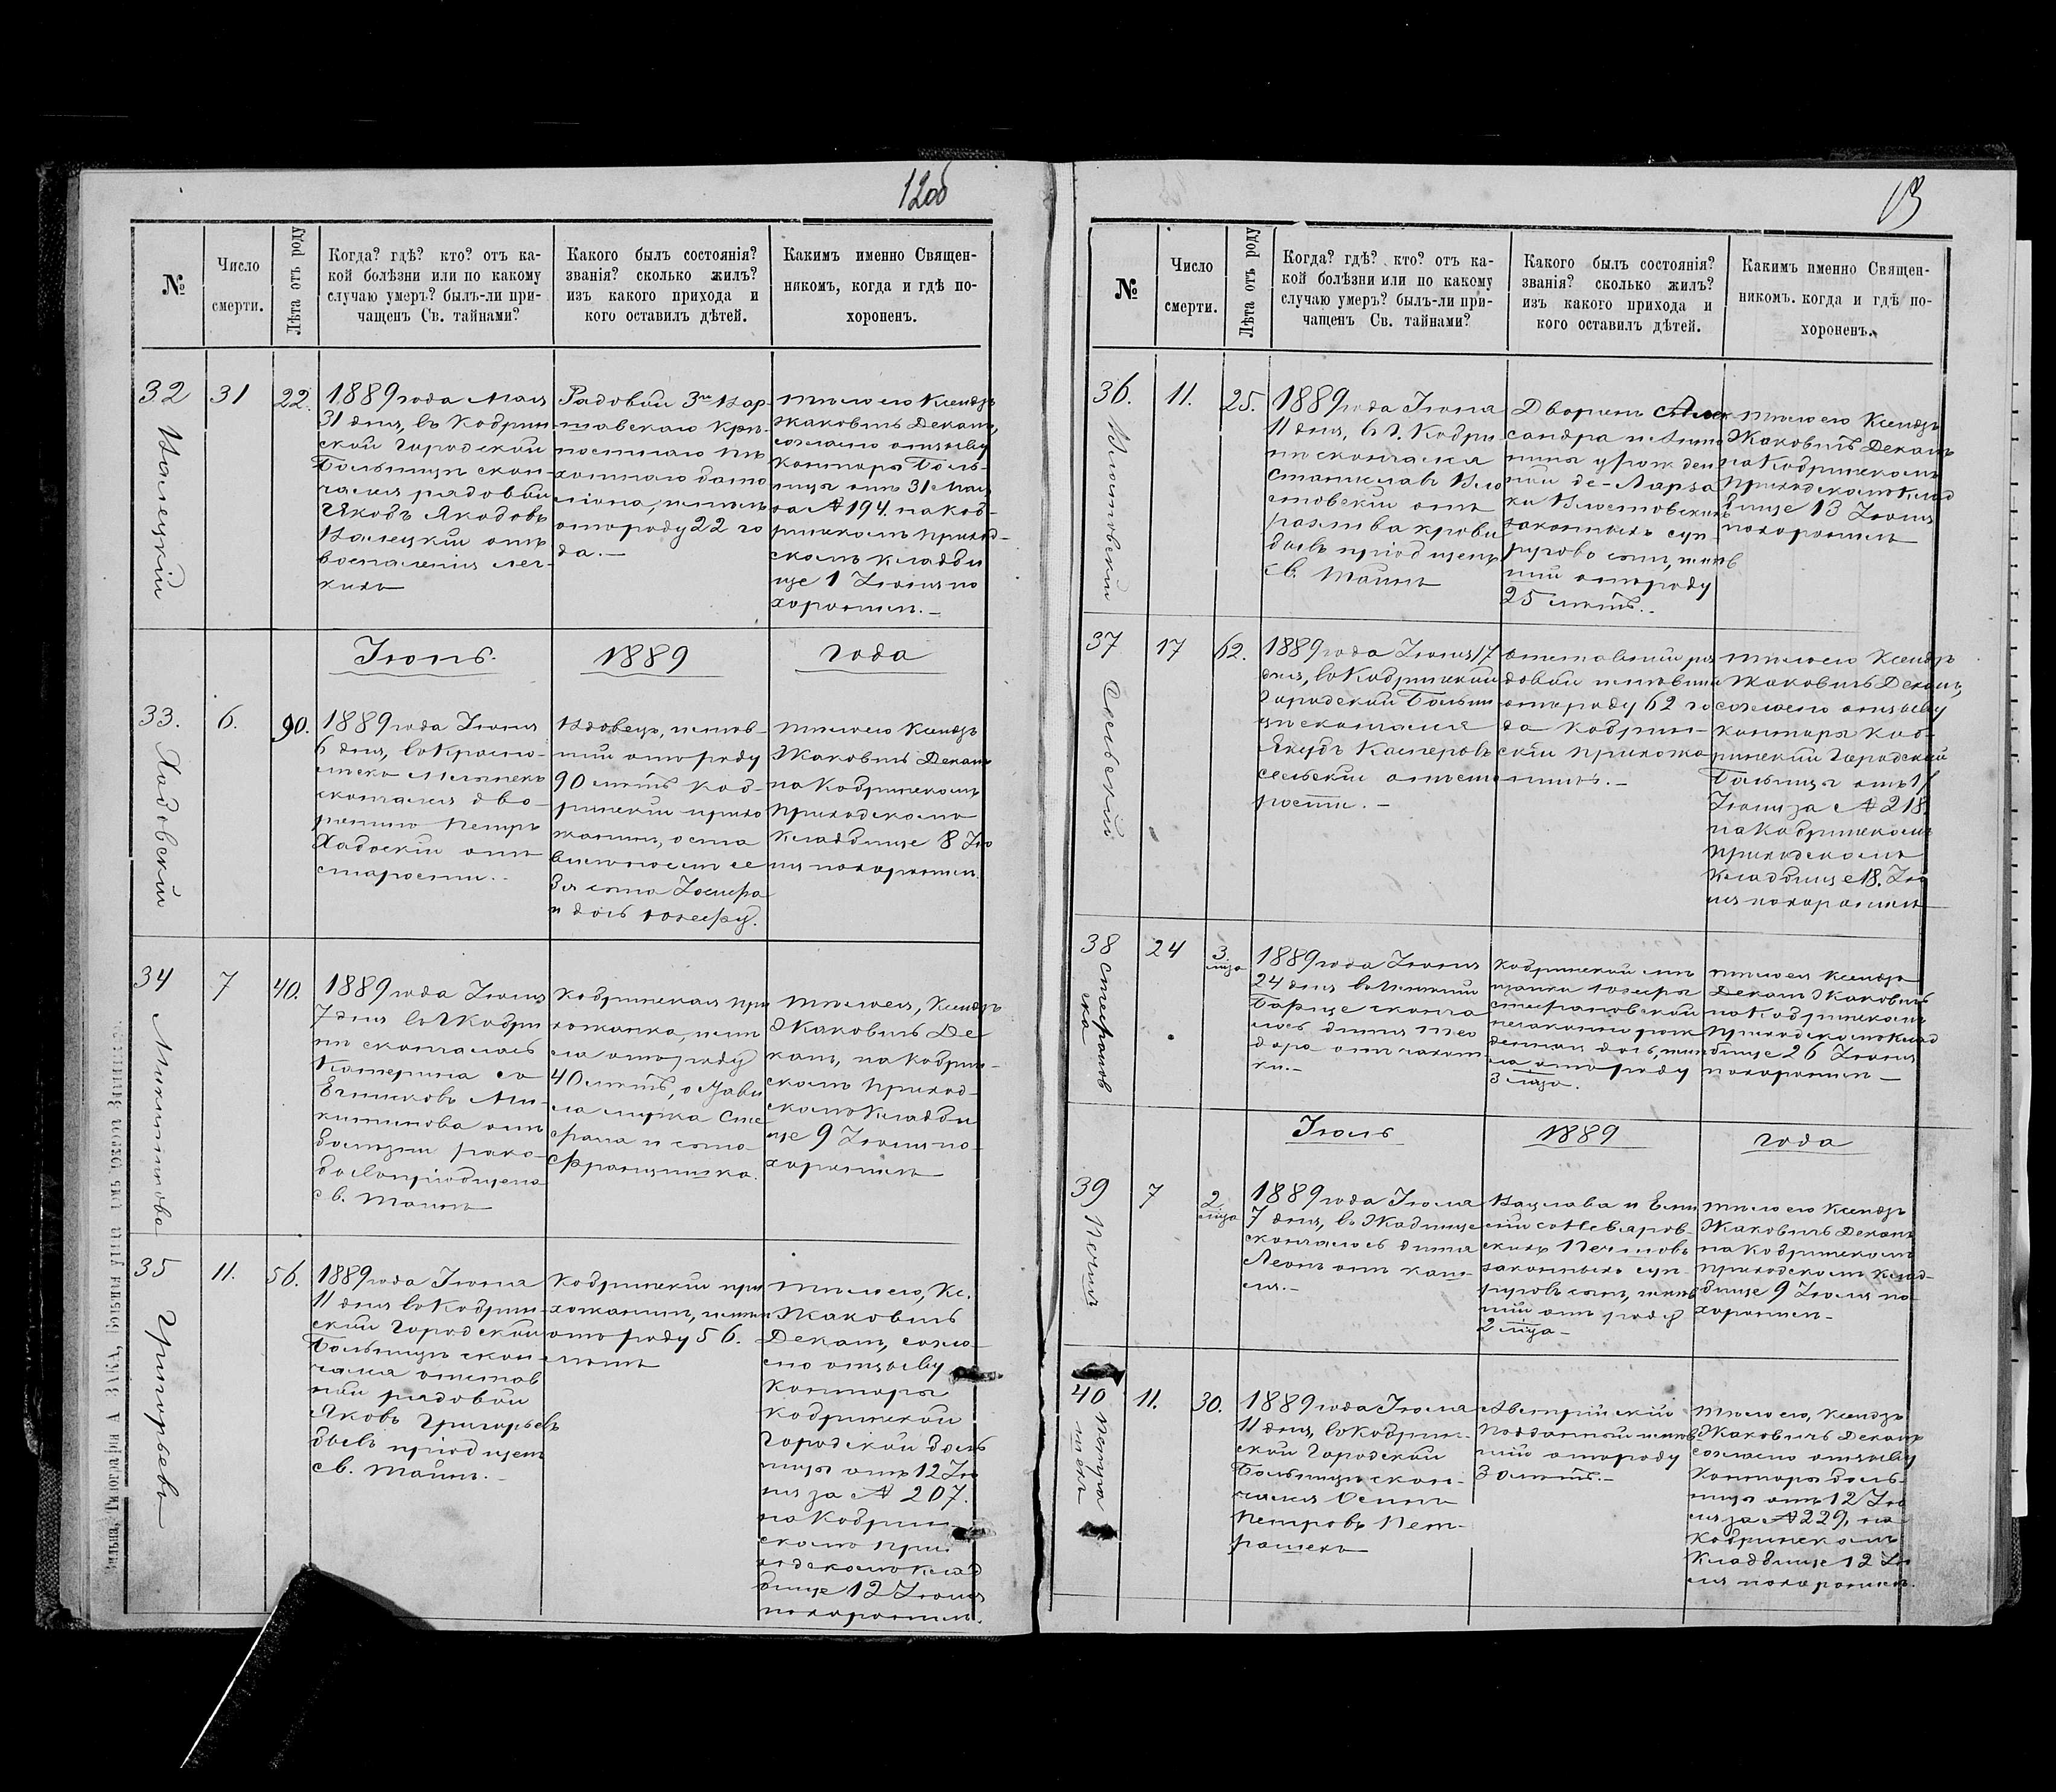 12об
№
Число
смерти.
Лѣта отъ роду
Когда? гдѣ? кто? отъ ка-
кой болѣзни или по какому
случаю умеръ? былъ-ли при-
чащенъ Св. тайнами?
Какого былъ состоянія?
званія? сколько жилъ?
изъ какого прихода и
кого оставилъ дѣтей.
Каким именно Священ-
никомъ, когда и гдѣ по-
хороненъ.
32
31
22.
1889 года Мая
31 дня, въ Кобрин
ской Городской
Больницѣ скон-
чался рядовой
Якобъ Якобовъ
Валецкій отъ
воспаленія лег-
кихъ
Рядовой 3го Вар-
шавскаго Крѣ-
постнаго пѣ
хотнаго бата
ліона,
отъ роду 22 го
да.
тѣло его Ксендзъ
Жаковичъ Деканъ,
согласно отзыву
Конторы Боль-
ницы отъ 31 Мая
за № 194. на Коб-
ринскомъ приход-
скомъ кладби
ще 1 Іюня по
хороненъ.
Валецкій
Іюнь.
1889
года
33.
6.
90.
1889 года Іюня
6 дня, въ
скончался дво-
рянинъ Петръ
отъ
старости.
Вдовецъ, имѣв-
шій отъ роду
90 лѣтъ Коб-
ринскій прихо
жанинъ, оста
вилъ послѣ се
бя сына
и дочь Юзефу.
тѣло его Ксендзъ
Жаковичъ Деканъ
на Кобринскомъ
Приходскомъ
Кладбище 8 Ію
ня похороненъ.
Ходовскій
34
7
40.
1889 года Іюня
7 дня въ г Кобри
нѣ скончалась
Катерина со
Ми-
китинова отъ
болѣзни рака
бывъ пріобщена
св. Таинъ
Кобринская при
хожанка, имѣ
ла отъ роду
40 лѣтъ, остави
ла мужа Сте
фана и сына
Францишка.
тѣло ея, Ксендзъ
Жаковичъ Де
канъ, на Кобрин-
скомъ Приход-
скомъ Кладби
ще 9 Іюня по-
хороненъ
Микитинова
35
11.
56.
1889 года Іюня
11 дня въ Кобрин-
ской Городской
Больницѣ скон-
чался отстав
ной рядовой
Яковъ Григорьевъ
бывъ пріобщенъ
св. Таинъ.
Кобринскій при
хожанинъ, имѣл
отъ роду 56.
лѣтъ
тѣло его, Кс.
Жаковичъ
Деканъ, согла-
сно отзыву
Конторы
Кобринской
Городской боль
ницы отъ 12 Ію
ня за № 207.
на Кобрин-
скомъ при
ходскомъ Клад
бище 12 Іюня
похороненъ.
Григорьевъ
13
№
Число
смерти.
Лѣта отъ роду
Когда? гдѣ? кто? отъ ка-
кой болѣзни или по какому
случаю умеръ? былъ-ли при-
чащенъ Св. тайнами?
Какого былъ состоянія?
званія? сколько жилъ?
изъ какого прихода и
кого оставилъ дѣтей.
Каким именно Священ-
никомъ. когда и гдѣ по-
хороненъ.
36.
11.
25.
1889 года Іюня
11 дня, въ г. Кобри-
нѣ скончался
Станиславъ Вло
стовскій отъ
разлива крови
бывъ пріобщенъ
св. Таинъ
Дворянъ Алек
сандра и Анто
нины урожден
ной де-Лярза
ки Влостовскихъ
законныхъ суп-
руговъ сынъ, имѣв
шій отъ роду
25 лѣтъ.
тѣло его Ксендзъ
Жаковичъ Деканъ
на Кобринскомъ
Приходскомъ Клад
бище 13 Іюня
похороненъ
Влостовскій
37
17
62.
1889 года Іюня 17
дня, въ Кобринской
Городской Больни
цѣ скончался
Якубъ Касперовъ
отъ ста
рости.
отставной ря
довой имѣвшій
отъ роду 62 го
да Кобрин-
скій прихожа
нинъ.
тѣло его Ксендзъ
Жаковичъ Деканъ,
согласно отзыву
конторы Коб-
ринской Городской
Больницы отъ 17
Іюня за № 218.
на Кобринскомъ
Приходскомъ
Кладбище 18. Ію
ня похороненъ
38
24
3
мца
1889 года Іюня
24 дня
сконча
лось дитя Тео
дора отъ чахот
ки.
Кобринской мѣ
щанки Юзефы
Стефановской
незаконно рож
денная дочь, имѣ
ла отъ роду
3 мца.
тѣло ея Ксендзъ
Деканъ Жаковичъ
на Кобринскомъ
Приходскомъ Клад
бище 26 Іюня
похороненъ
Стефанов
ска
Іюль
1889
года
39
7
2
мца
1889 года Іюля
7 дня,
скончалось дитя
Леонъ отъ каш-
ля.
Вацлава и Еми
ліи
законныхъ суп-
руговъ сынъ, имѣв
шій отъ роду
2 мца
тѣло его Ксендзъ
Жаковичъ Деканъ
на Кобринскомъ
Приходскомъ клад-
бище 9 Іюля по-
хороненъ
40
11.
30.
1889 года Іюля
11 дня, въ Кобрин-
ской Городской
Больницѣ скон-
чался Осипъ
Петровъ
Австрійскій
Подданный имѣв
шій отъ роду
30 лѣтъ.
тѣло его, Ксендзъ
Жаковичъ Деканъ
согласно отзыву
Конторы боль-
ницы отъ 12 Ію
ля за № 229, на
Кобринскомъ
Кладбище 12 Ію
ля похороненъ.